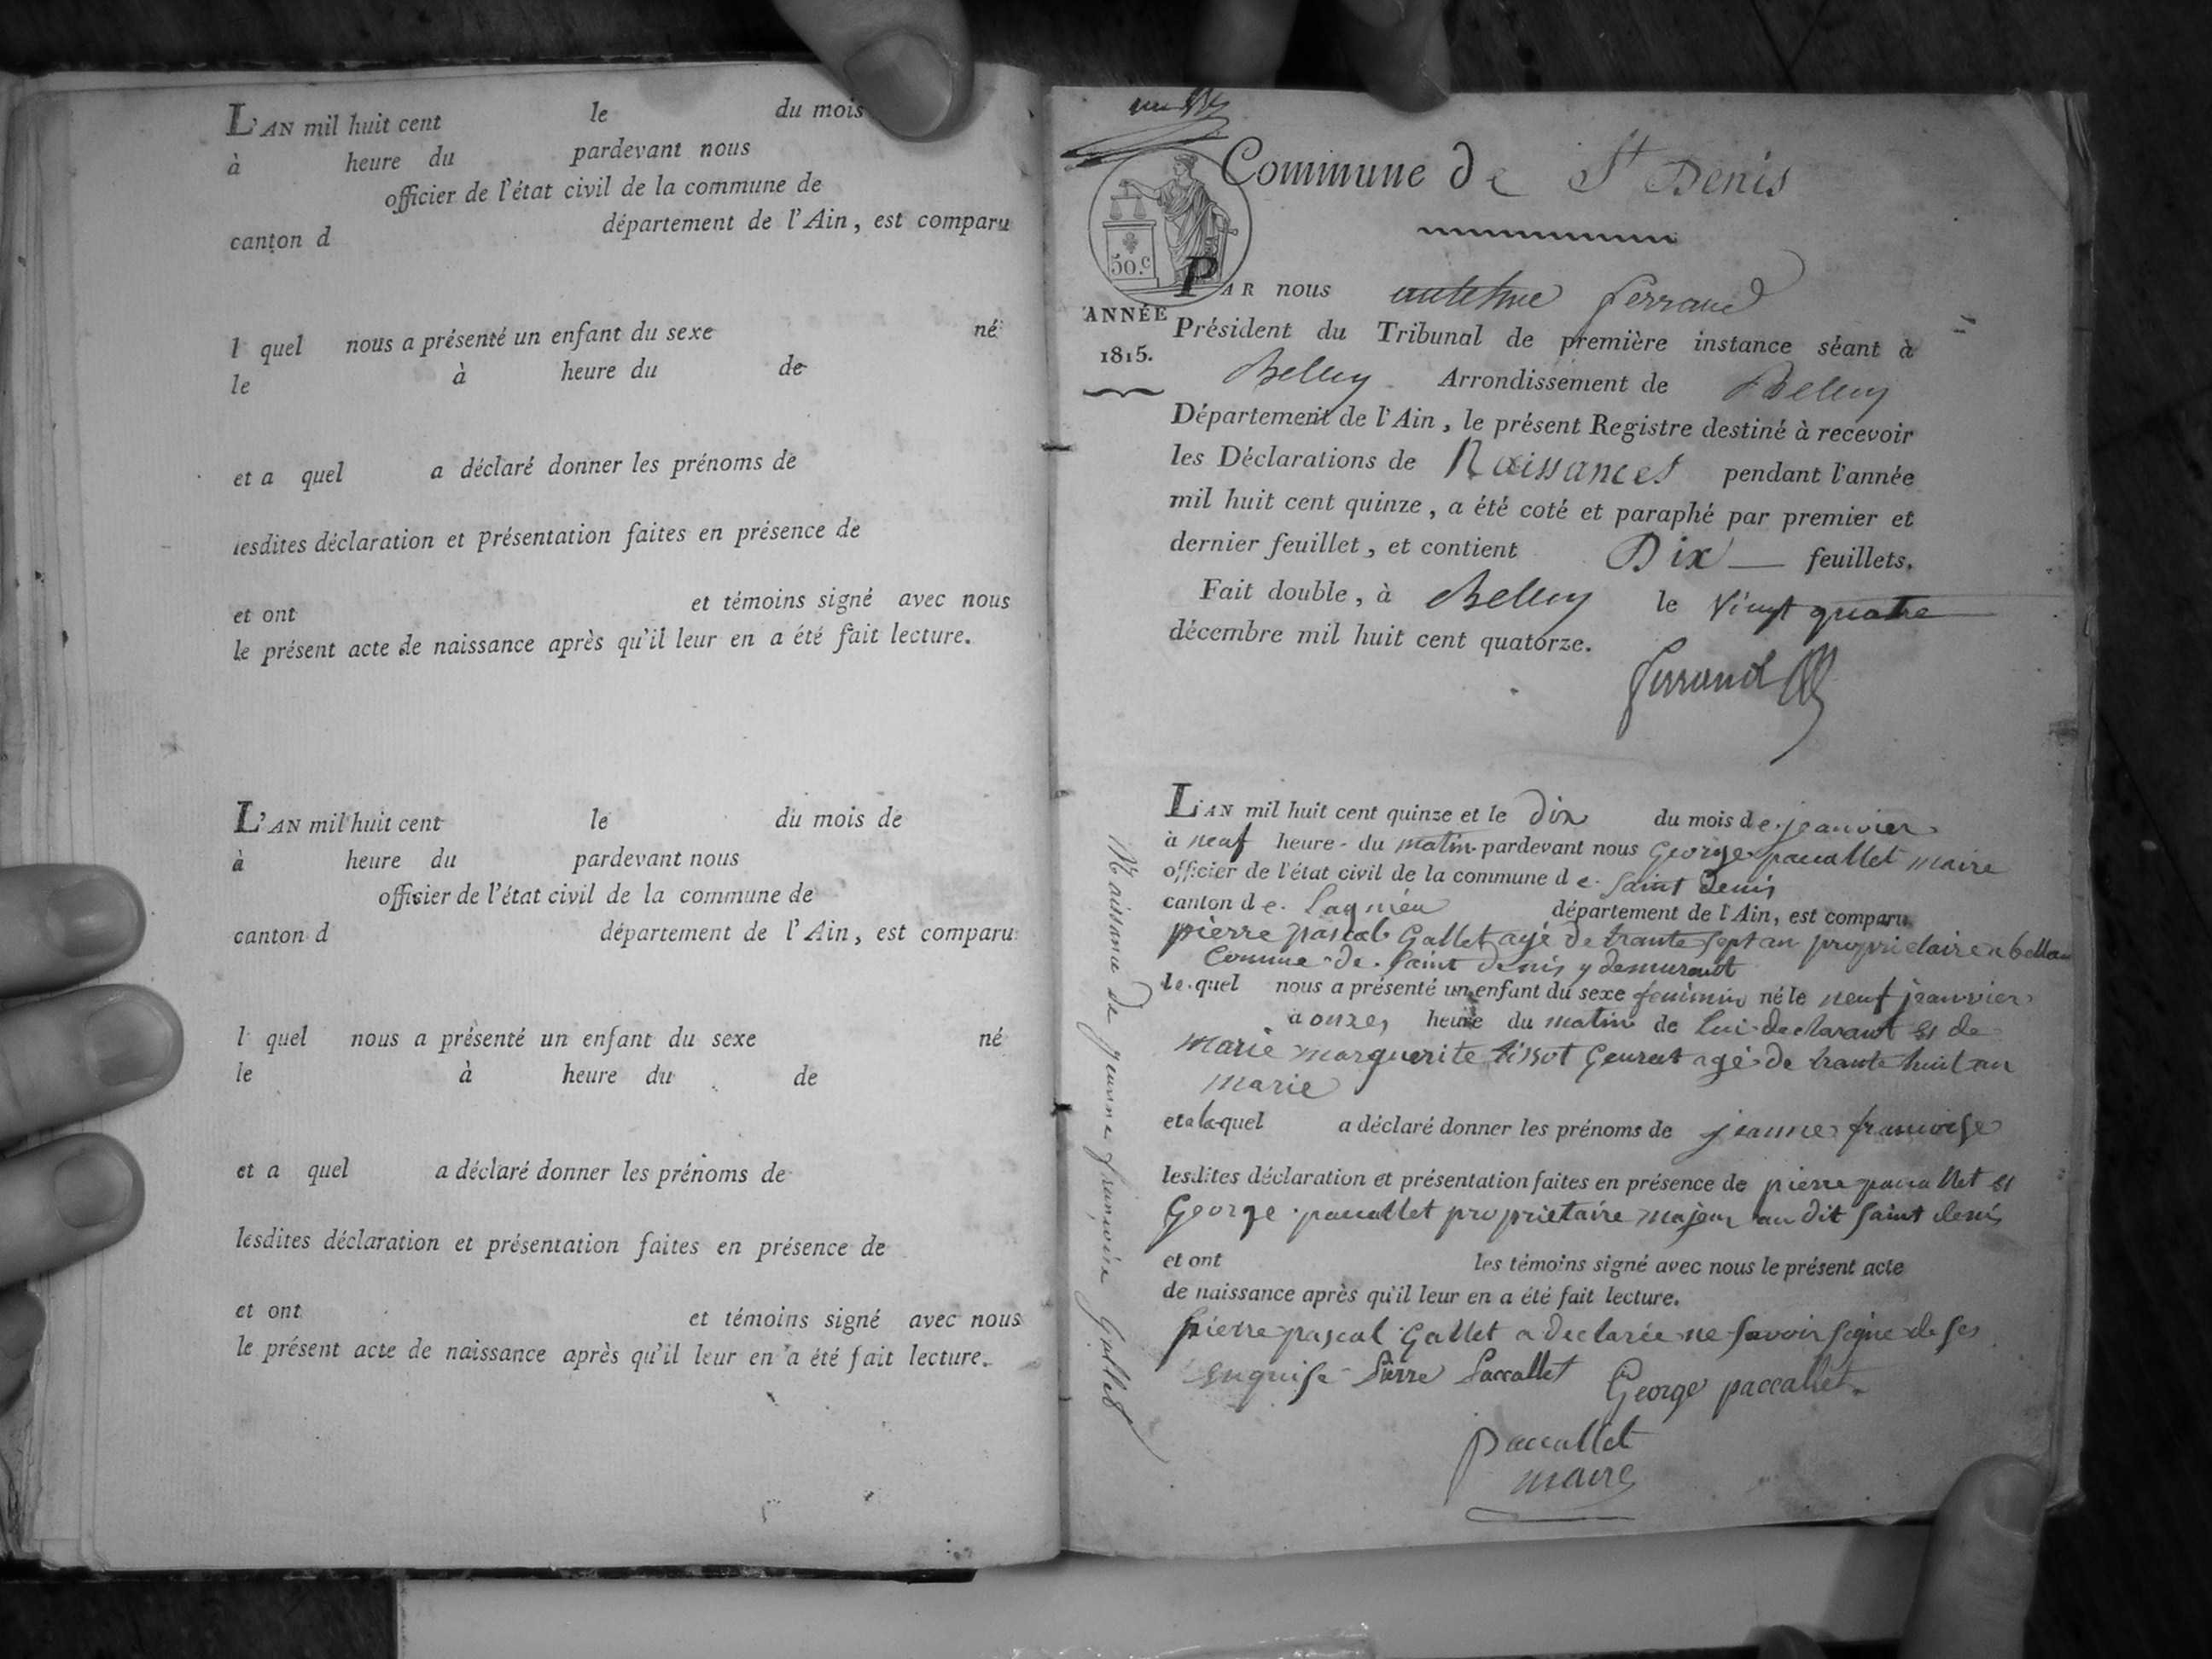 L'AN mil huit cent le du mois
à heure du pardevant nous
officier de l'état civil de la commune de
canton d département de l'Ain, est comparu
l quel nous a présenté un enfant du sexe né
le à heure du de
et a quel a déclaré donner les prénoms de
lesdites déclaration et présentation faites en présence de
et ont et témoins signé avec nous
le présent acte de naissance après qu'il leur en a été fait lecture.
L'AN mil huit cent le du mois de
à heure du pardevant nous
officier de l'état civil de la commune de
canton d département de l'Ain, est comparu
l quel nous a présenté un enfant du sexe né
le à heure du de
et a quel a déclaré donner les prénoms de
lesdites déclaration et présentation faites en présence de
et ont et témoins signé avec nous
le présent acte de naissance après qu'il leur en a été fait lecture.
Commune de St Denis
50.c
ANNÉE
1815.
PAR nous antelme ferrand
Président du Tribunal de première instance séant à
Belley Arrondissement de Belley
Département de l'Ain, le présent Registre destiné à recevoir
les Déclarations de Naissances pendant l'année
mil huit cent quinze, a été coté et paraphé par premier et
dernier feuillet, et contient Dix feuillets.
Fait double, à Belley le vingt quatre
décembre mil huit cent quatorze.
ferrand
Naissance de jeanne françoise Gallet
L'AN mil huit cent quinze et le dix du mois de jeanvier
à neuf heure du matin pardevant nous George paccallet maire
officier de l'état civil de la commune de Saint Denis
canton de Lagnieu département de l'Ain, est comparu
pierre pascal Gallet agé de trante sept an propriétaire a
Comune de Saint denis y demurant
le quel nous a présenté un enfant du sexe feminin né le neuf jeanvier
a onze heure du matin de lui declarant et de
marie marguerite tissot agé de trante huit an
marie
et a la quel a déclaré donner les prénoms de jeanne francoise
lesdites déclaration et présentation faites en présence de pierre paccallet et
George paccallet proprietaire majeur au dit saint denis
et ont les témoins signé avec nous le présent acte
de naissance après qu'il leur en a été fait lecture.
pierre pascal Gallet a declarée ne savoir signe de ses
enquise Pierre Paccallet George paccallet
paccallet
maire